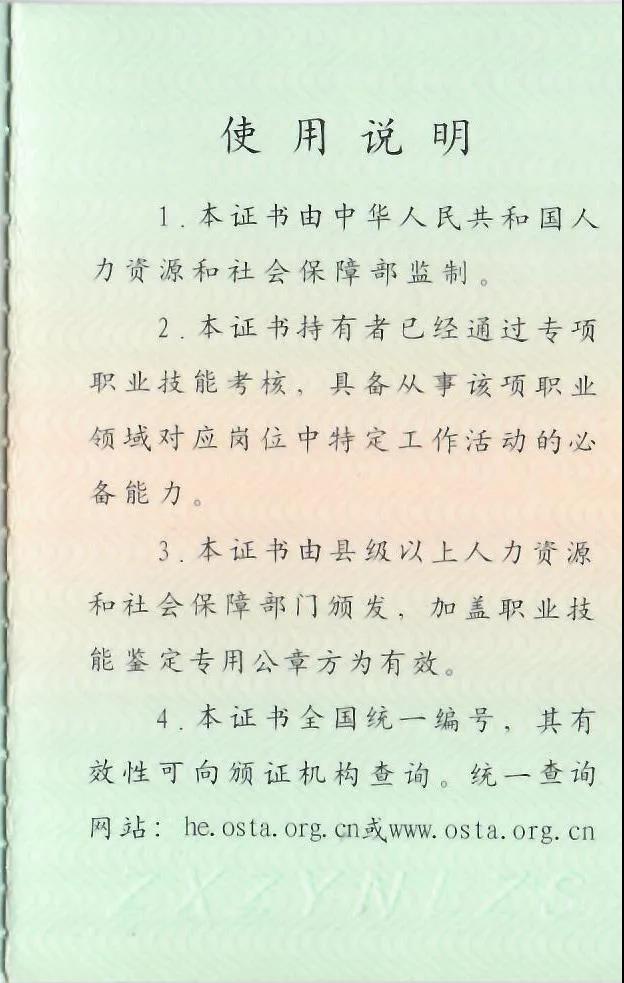 使用说明
1.本证书由中华人民共和国人
力资源和社会保障部监制。
2.本证书持有者已经通过专项
职业技能考核，具备从事该项职业
领域对应岗位中特定工作活动的必
备能力。
3.本证书由县级以上人力资源
和社会保障部门颁发，加盖职业技
能鉴定专用公章方为有效。
4.本证书全国统一编号，其有
效性可向颁证机构查询。统一查询
网站：he.osta.org.cn或www.osta.org.cn
ZXZYNLZS